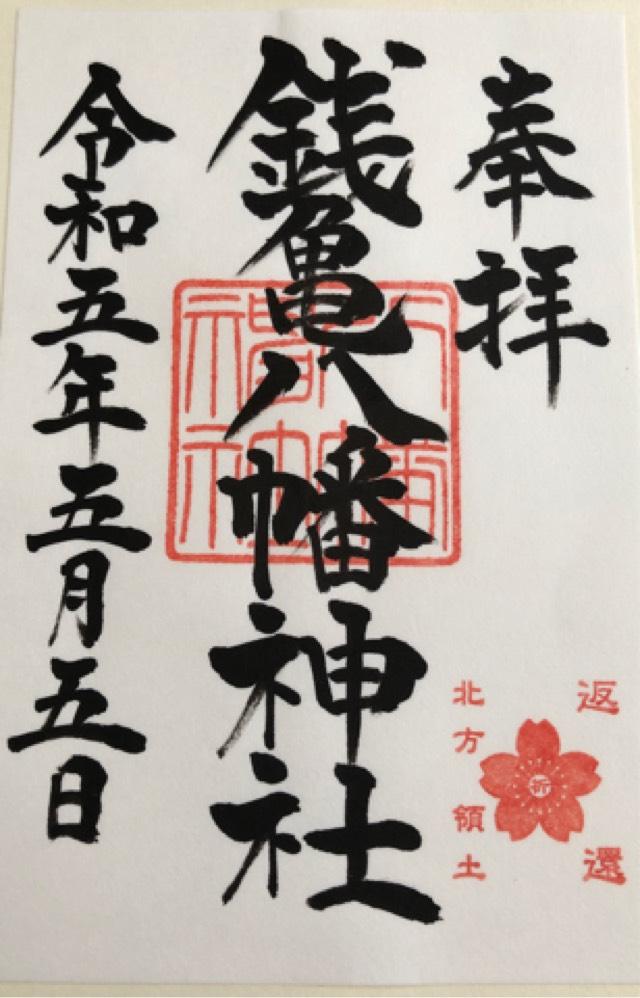 奉拝
銭亀八幡神社
令和五年五月五日
北方領土
返還
祈